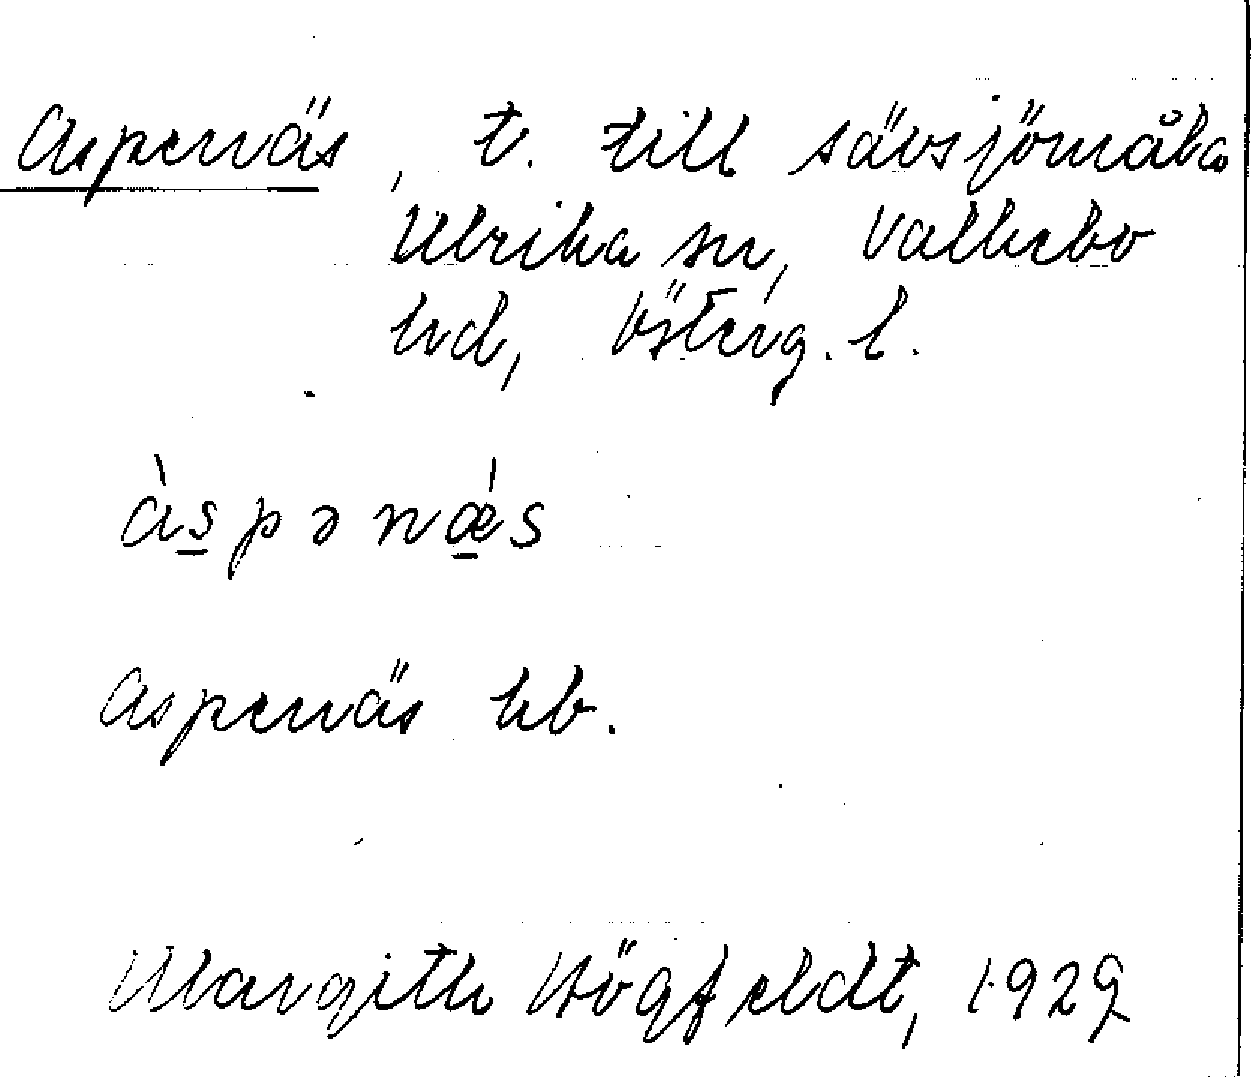 Aspenäs, t. till Sävsjömåla
Ulrika sn, Valkebo
hd, Österg. l.
àspənǽs
Aspenäs hb.
Margith Högfeldt, 1929